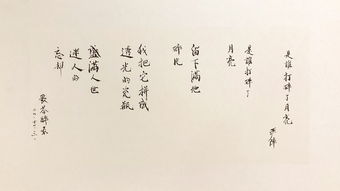 是誰打碎了月亮
是誰打碎了
月亮
留下滿地
碎片
我把它拼成
透光的瓷瓶
盛滿人世
迷人的
忘却